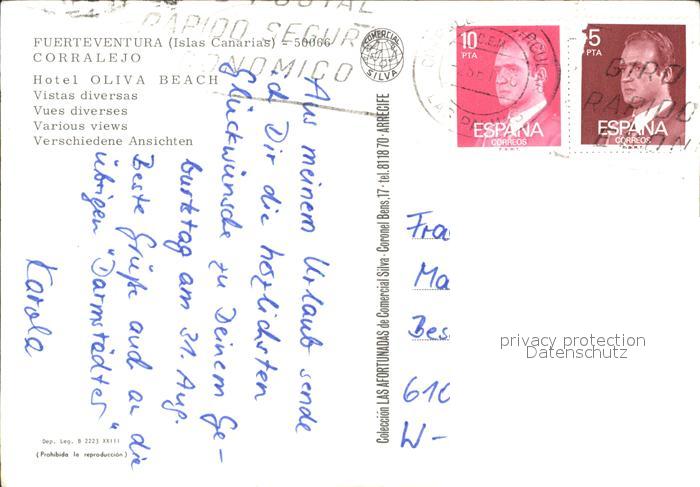 FUERTEVENTURA (Islas Canarias) - 50066
CORRALEJO
Hotel OLIVA BEACH
Vistas diversas
Vues diverses
Various views
Verschiedene Ansichten
Aus meinem Urlaub sende
ich Dir die herzlichsten
Glückwünsche zu Deinem Ge-
burtstag am 31. Aug.
Beste Grüße auch an die
übrigen "Darmstädter"
Karola
Dep. Leg. B 2223 XXIII
(Prohibida la reproducción)
COMERCIAL
SILVA
Colección LAS AFORTUNADAS de Comercial Silva - Coronel Bens, 17 - tel. 811870 - ARRECIFE
10
PTA
ESPAÑA
CORREOS
5
PTA
ESPAÑA
CORREOS
POSTAL
RAPIDO SEGUR
ONOMICO
GIRO
RAPIDO
LAS PALMAS
Fra
Ma
Bes
610
W-
privacy protection
Datenschutz